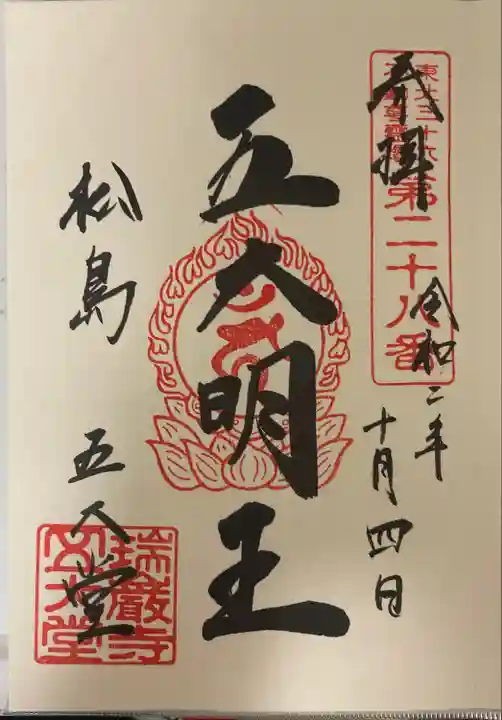 奉拝
東北三十六
不動尊霊場
第二十八番
令和二年
十月四日
五大明王
松島 五大堂
瑞巌寺
五大堂